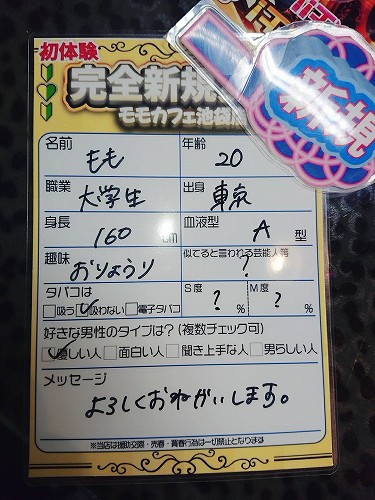 初体験
完全新規
モモカフェ池袋
新規
名前 もも 年齢 20
職業 大学生 出身 東京
身長 160 cm 血液型 A 型
趣味 おりょうり 似てると言われる芸能人等 ?
タバコは S度 M度
□吸う ☑吸わない □電子タバコ ? % ? %
好きな男性のタイプは?(複数チェック可)
☑優しい人 □面白い人 □聞き上手な人 □男らしい人
メッセージ
よろしくおねがいします。
※当店は援助交際・売春・買春行為は一切禁止となります